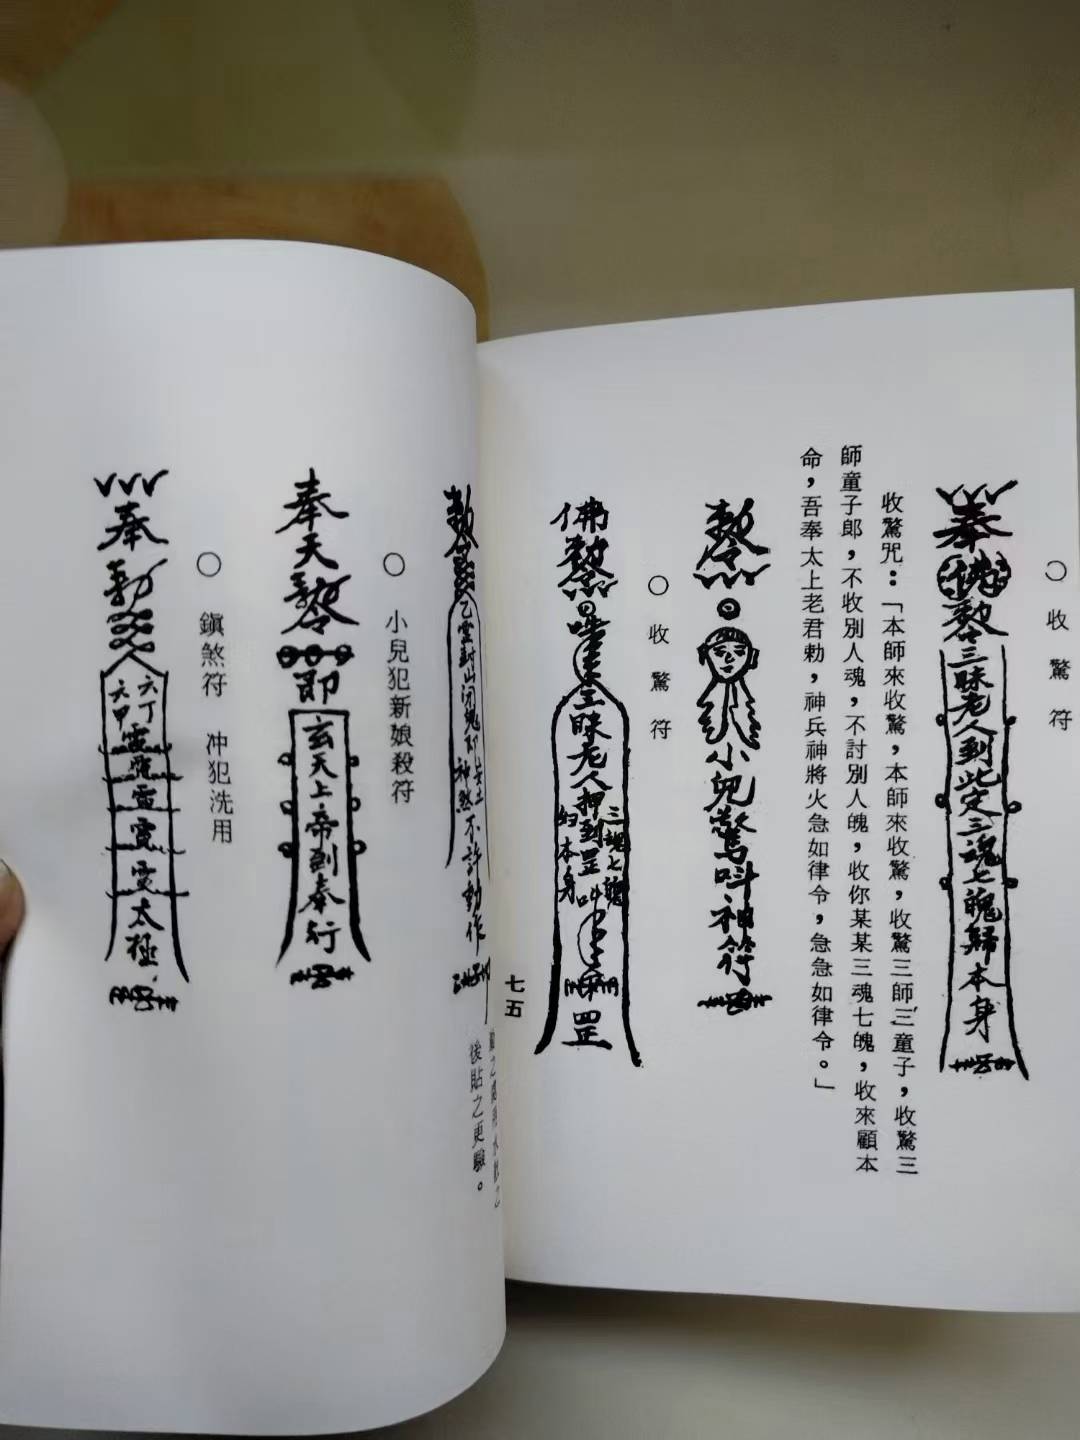 ○ 收驚符
奉佛勅令三昧老人到此定三魂七魄歸本身
收驚咒：「本師來收驚，本師來收驚，收驚三師三童子，收驚三
師童子郎，不收別人魂，不討別人魄，收你某某三魂七魄，收來顧本
命，吾奉太上老君勅，神兵神將火急如律令，急急如律令。」
勅令
小兒驚叫神符
○ 收驚符
佛勅令
三昧老人押到罡
三魂七魄
歸本身
罡
七五
後貼之更驗。
不許動作
神煞
○ 小兒犯新娘殺符
奉天勅令
即
玄天上帝到奉行
○ 鎮煞符 冲犯洗用
奉勅
六丁
六甲
太極